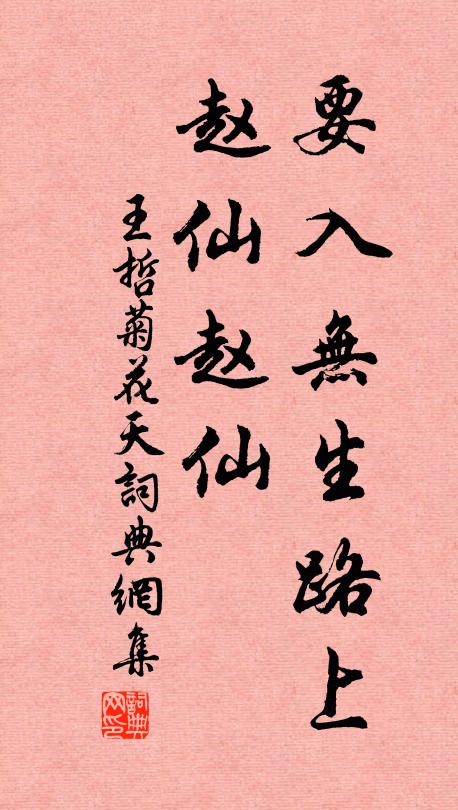 要入無生路上
赵仙赵仙
王哲菊花天詞典網集
詞典网印